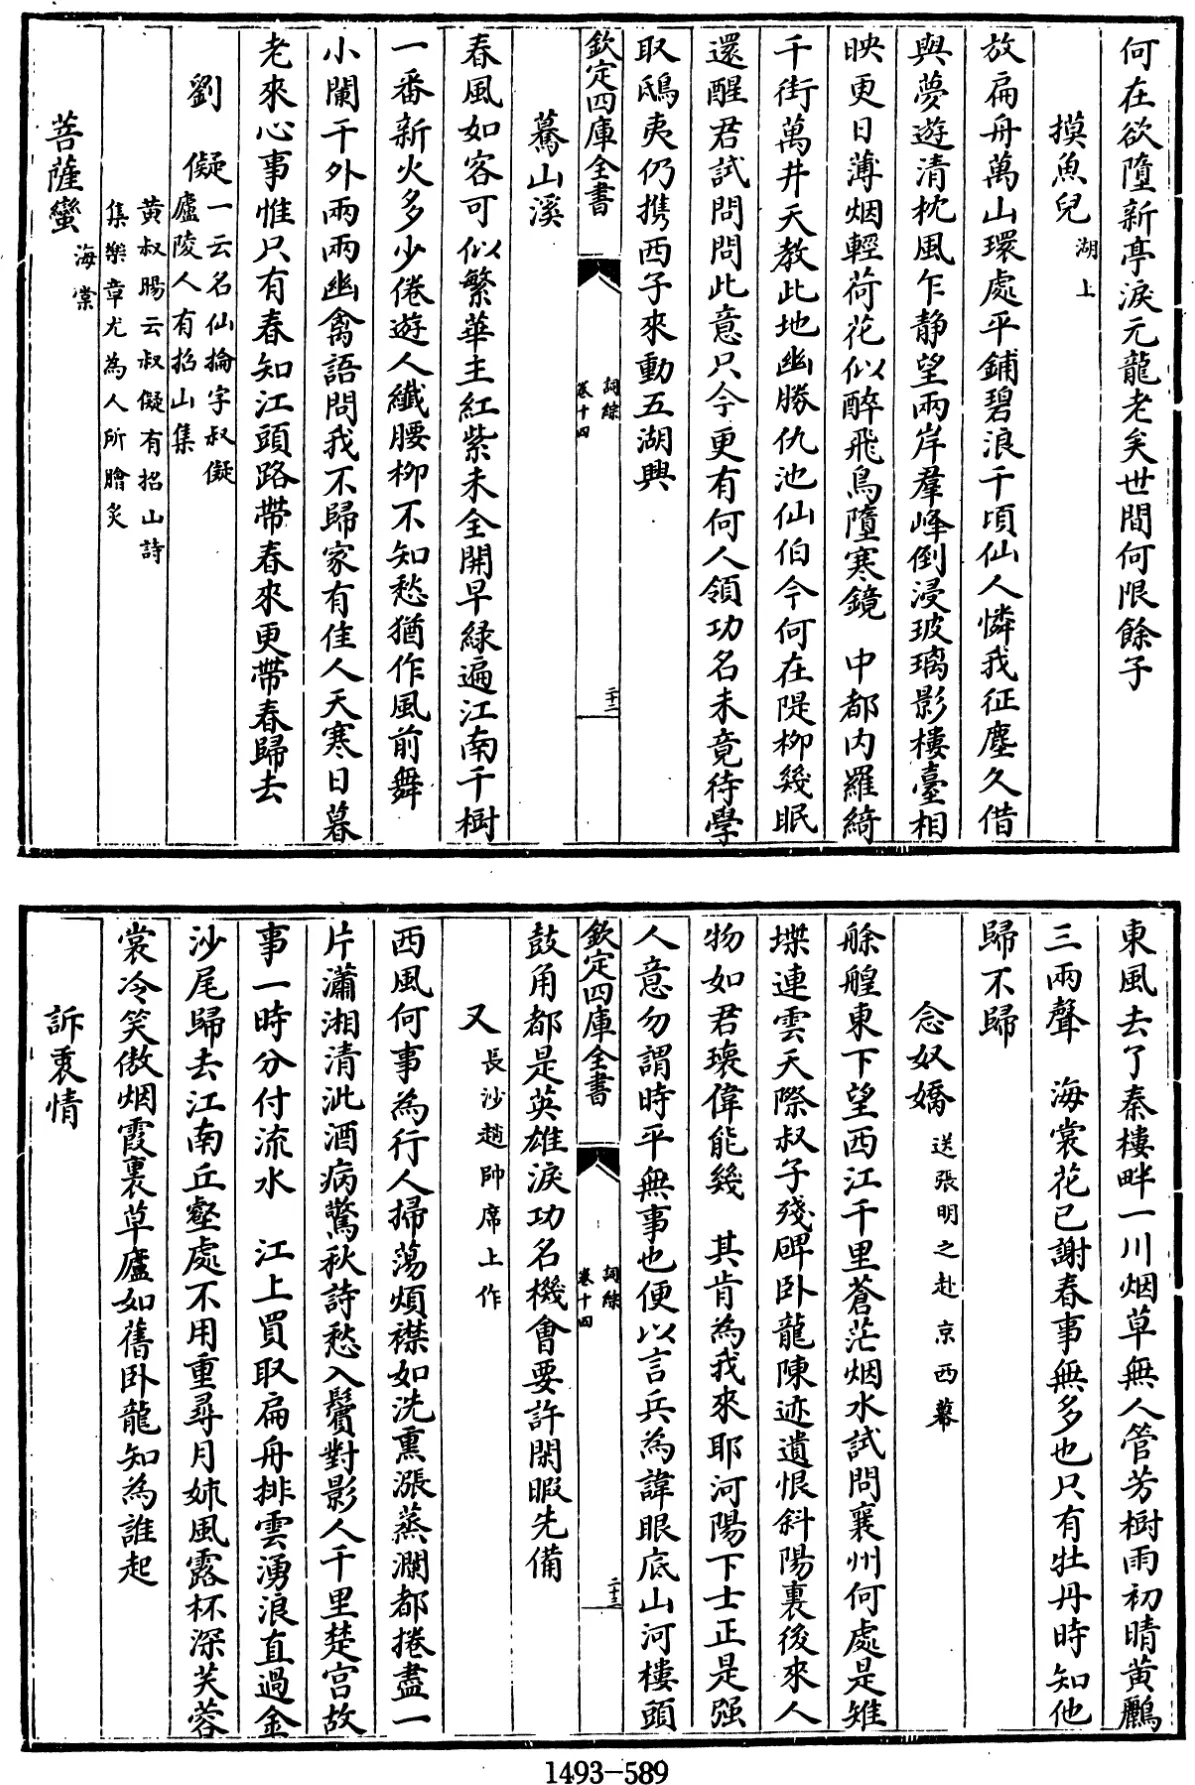 何在欲墮新亭淚元龍老矣世間何限餘子
摸魚兒湖上
放扁舟萬山環處平鋪碧浪千頃仙人憐我征塵久借
與夢遊清枕風乍靜望兩岸羣峰倒浸玻璃影樓臺相
映更日薄烟輕荷花似醉飛鳥墮寒鏡　中都内羅綺
千街萬井天教此地幽勝仇池仙伯今何在隄柳幾眠
還醒君試問問此意只今更有何人領功名未竟待學
取鴟夷仍携西子來動五湖興
欽定四庫全書
詞綜
卷十四
二十二
驀山溪
春風如客可似繁華主紅紫未全開早緑遍江南千樹
一番新火多少倦遊人纖腰柳不知愁猶作風前舞
小闌干外兩兩幽禽語問我不歸家有佳人天寒日暮
老來心事惟只有春知江頭路帶春來更帶春歸去
劉儗一云名仙掄字叔儗
廬陵人有招山集
黄叔暘云叔儗有招山詩
集樂章尤為人所膾炙
菩薩蠻海棠
東風去了秦樓畔一川烟草無人管芳樹雨初晴黄鸝
三兩聲　海裳花已謝春事無多也只有牡丹時知他
歸不歸
念奴嬌送張明之赴京西幕
艅艎東下望西江千里蒼茫烟水試問襄州何處是雉
堞連雲天際叔子殘碑卧龍陳迹遺恨斜陽裏後來人
物如君瓌偉能幾　其肯為我來耶河陽下士正是强
人意勿謂時平無事也便以言兵為諱眼底山河樓頭
欽定四庫全書
詞綜
卷十四
二十三
鼓角都是英雄淚功名機會要許閑暇先備
又長沙趙帥席上作
西風何事為行人掃蕩煩襟如洗熏漲蒸瀾都捲盡一
片瀟湘清泚酒病驚秋詩愁入鬢對影人千里楚宫故
事一時分付流水　江上買取扁舟排雲湧浪直過金
沙尾歸去江南丘壑處不用重尋月姊風露杯深芙蓉
裳冷笑傲烟霞裏草廬如舊卧龍知為誰起
訴衷情
1493-589